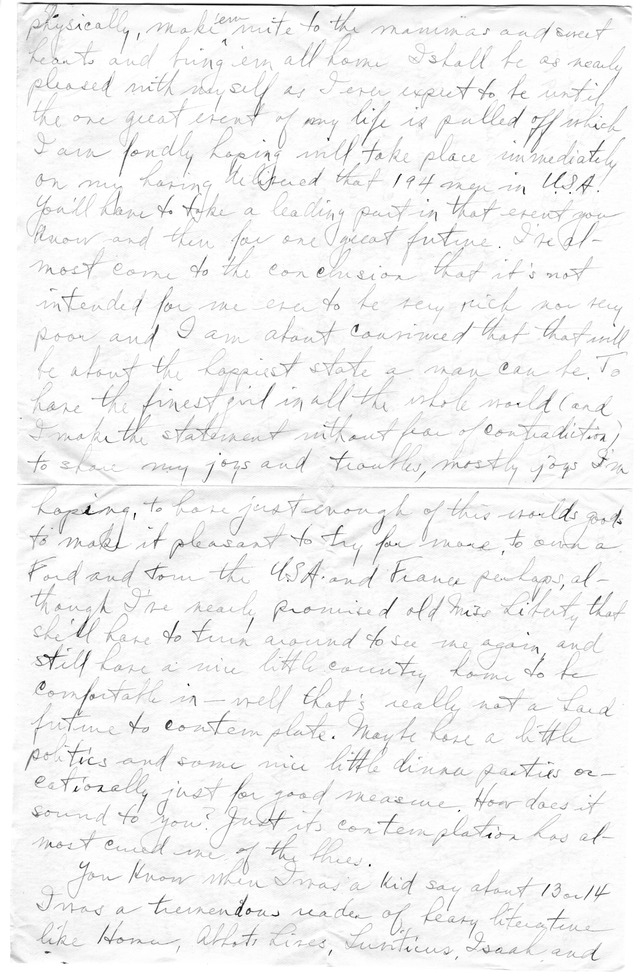 physically, make 'em write to the mammas and sweet
hearts and bring 'em all home I shall be as nearly
pleased with myself as I ever expect to be until
the one great event of my life is pulled off which
I am fondly hoping will take place immediately
on my having delivered that 194 men in U.S.A.
You'll have to take a leading part in that event you
know and then for one great future. I've al-
most come to the conclusion that it's not
intended for me ever to be very rich nor very
poor and I am about convinced that that will
be about the happiest state a man can be. To
have the finest girl in all the whole world (and
I make the statement without fear of contradiction)
to share my joys and troubles, mostly joys I'm
hoping, to have just enough of this worlds goods
to make it pleasant to try for more, to own a
Ford and tour the U.S.A. and France perhaps, al-
though I've nearly promised old Miss Liberty that
she'll have to turn around to see me again, and
still have a nice little country home to be
comfortable in - well that's really not a bad
future to contemplate. Maybe have a little
politics and some nice little dinner parties oc-
cationally just for good measure. How does it
sound to you? Just its contemplation has al-
most cured me of the blues.
You know when I was a kid say about 13 or 14
I was a tremendous reader of heavy literature
like Homer, Abbots Lives, Leviticus, Isaah and